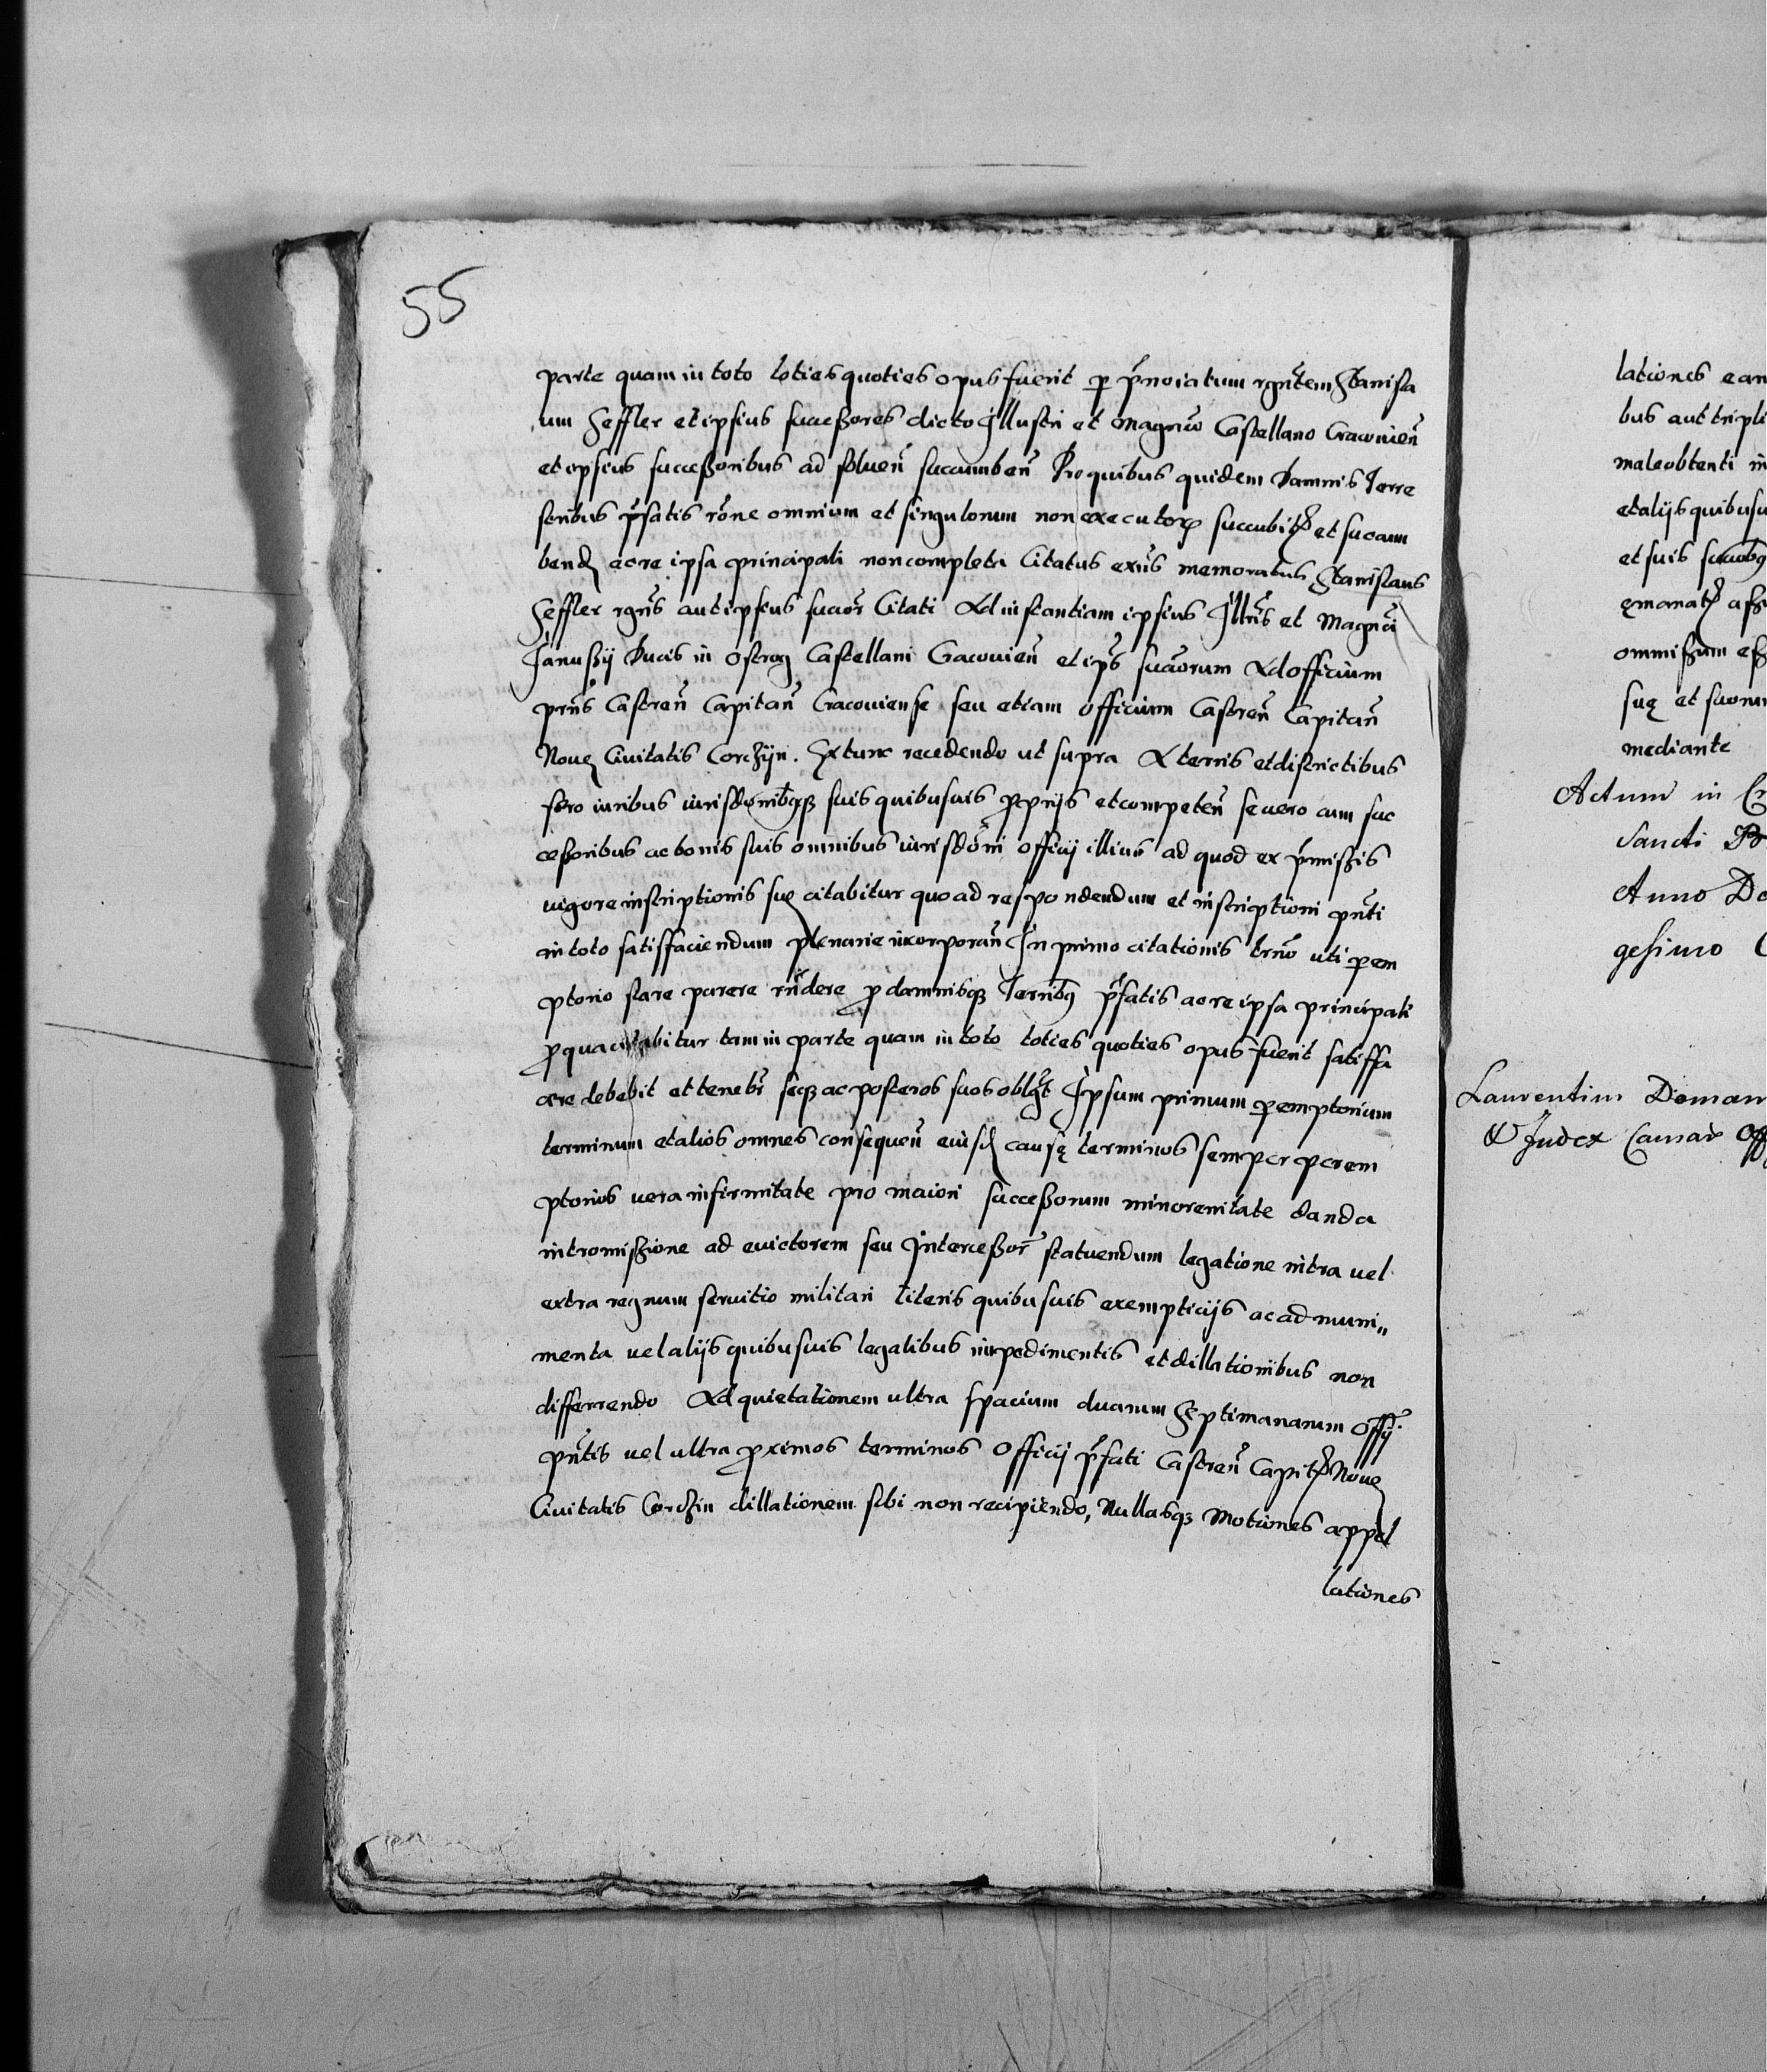 55
parte quam in toto toties quoties opus fuerit p p̃noiatum rgñtem Stanisla
um Seffler et ipsius succeßores dicto Jllustri et Magnico Castellano Cracovieñ
et ipsius succeßoribus ad solueñ succumbeñ Pro quibus quidem Damnis Terre
stribus p̃fatis rõne omnium et singulorum non executor succubit et succum
bend ac re ipsa principali non completa Citatus exñs memoratus Stanislaus
Seffler rgñs aut ipsius succor̃ Citati Ad instantiam ipsius Jllris et Magnci
Janußij Ducis in Ostrog Castellani Cracouieñ et ips succorum Ad officium
prñs Castreñ Capitañ Cracouiense seu etiam officium Castreñ Capitañ
Noue Ciuitatis Corczijn. Extunc recedendo ut supra A terris et districtibus
foro iuribus iurisdonibq suis quibusuis pprijs et competeñ se uero cum suc
ceßoribus ac bonis suis omnibus iurisdõni officij illius ad quod ex p̃mißis
uigore inscriptionis sue citabitur quo ad respondendum et inscriptioni pñti
in toto satisfaciendum plenarie incorporañ In primo citationis trño uti pem
ptorio stare parere rñdere p damnisq Terribq p̃fatis ac re ipsa principali
p qua citabitur tam in parte quam in toto toties quoties opus fuerit satisfa
cere debebit et tenebr seq ac posteros suos oblgt Ipsum primum pemptorium
terminum et alios omnes consequeñ eiusd causę terminos semper perem
ptorios uera infirmitate pro maiori succeßorum minorenitate danda
intromißione ad euictorem seu Interceßor statuendum legatione intra uel
extra regnum seruitio militari literis quibusuis exempticijs ac ad muni„
menta uel alijs quibusuis legalibus impedimentis et dillationibus non
differrendo Ad quietationem ultra spacium duarum Septimanarum Offij
pñtis uel ultra pximos terminos Officij p̃fati Castreñ Capit Noue
Ciuitatis Corczin dillationem sibi non recipiendo, Nullasq Motiones appel
lationes
lationes ean
bus aut tripli
male obtenti in
et alijs quibusu
et suis
ęmanat aß
ommißum eß
suę et suorum
mediante
Actum in Cr
Sancti
Anno Do
gesimo
Laurentius Doman
Judex Causar Off